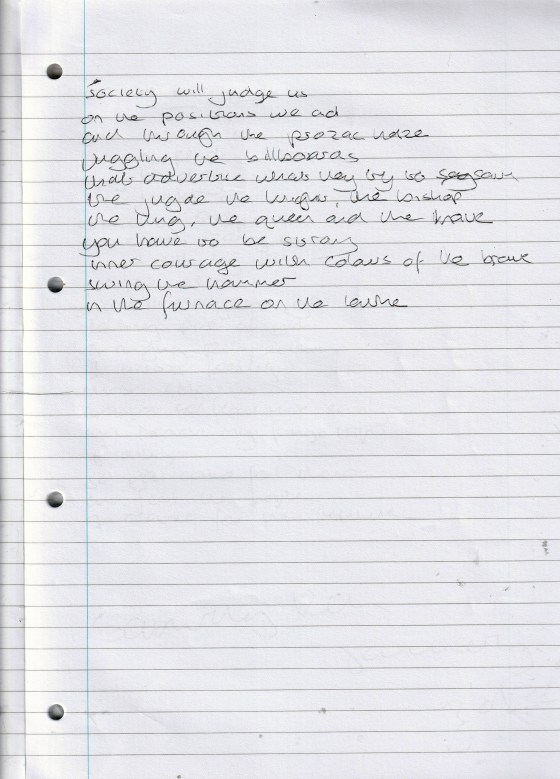 society will judge us
on the positions we ad
and through the prozac haze
juggling the billboards
that advertise what they try to
the jugde the knight, the bishop
the king, the queen and the knave
you have to be strong
inner courage with colours of the brave
swing the hammer
in the furnace on the